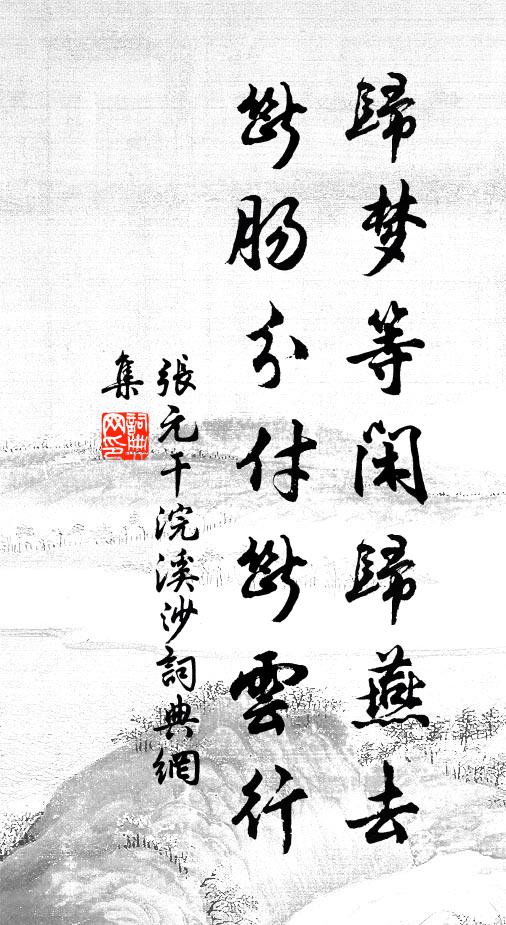 歸梦等闲歸燕去
斷腸分付斷雲行
張元干浣溪沙詞典網
集
詞典
网印